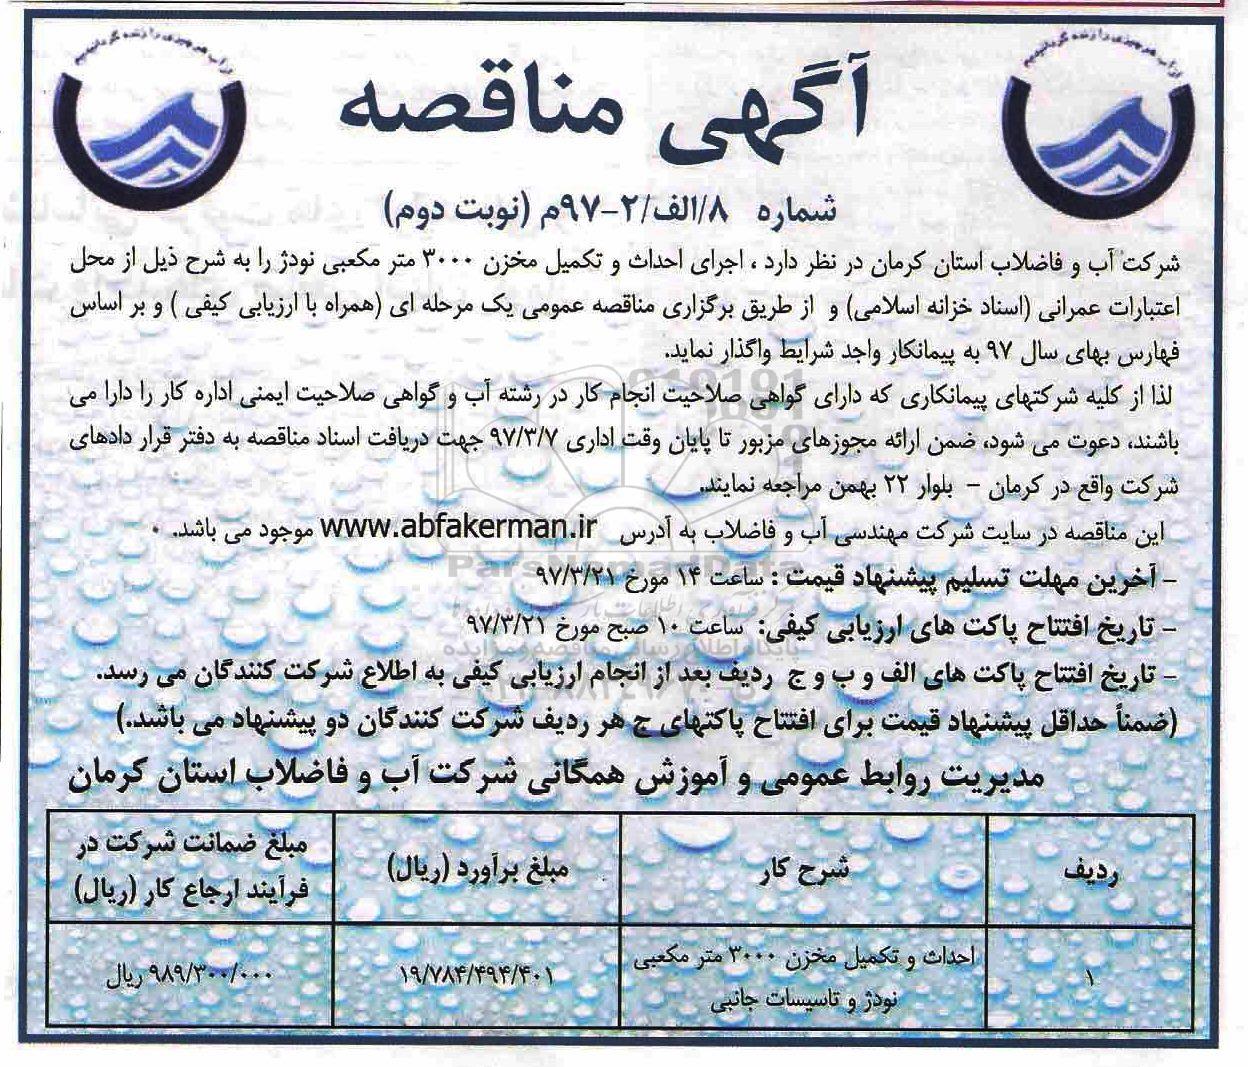 از آب هر چیزی را زنده گردانیدیم
از آب هر چیزی را زنده گردانیدیم
آگهی مناقصه
شماره ۸/الف/۲-۹۷م (نوبت دوم)
شرکت آب و فاضلاب استان کرمان در نظر دارد ، اجرای احداث و تکمیل مخزن ۳۰۰۰ متر مکعبی نودژ را به شرح ذیل از محل
اعتبارات عمرانی (اسناد خزانه اسلامی) و از طریق برگزاری مناقصه عمومی یک مرحله ای (همراه با ارزیابی کیفی ) و بر اساس
فهارس بهای سال ۹۷ به پیمانکار واجد شرایط واگذار نماید.
لذا از کلیه شرکتهای پیمانکاری که دارای گواهی صلاحیت انجام کار در رشته آب و گواهی صلاحیت ایمنی اداره کار را دارا می
باشند، دعوت می شود، ضمن ارائه مجوزهای مزبور تا پایان وقت اداری ۹۷/۳/۷ جهت دریافت اسناد مناقصه به دفتر قرار دادهای
شرکت واقع در کرمان – بلوار ۲۲ بهمن مراجعه نمایند.
این مناقصه در سایت شرکت مهندسی آب و فاضلاب به آدرس www.abfakerman.ir موجود می باشد.
- آخرین مهلت تسلیم پیشنهاد قیمت : ساعت ۱۴ مورخ ۹۷/۳/۲۱
- تاریخ افتتاح پاکت های ارزیابی کیفی: ساعت ۱۰ صبح مورخ ۹۷/۳/۲۱
- تاریخ افتتاح پاکت های الف و ب و ج ردیف بعد از انجام ارزیابی کیفی به اطلاع شرکت کنندگان می رسد.
(ضمناً حداقل پیشنهاد قیمت برای افتتاح پاکتهای ج هر ردیف شرکت کنندگان دو پیشنهاد می باشد.)
مدیریت روابط عمومی و آموزش همگانی شرکت آب و فاضلاب استان کرمان
ردیف شرح کار مبلغ برآورد (ریال) مبلغ ضمانت شرکت در
فرآیند ارجاع کار (ریال)
۱ احداث و تکمیل مخزن ۳۰۰۰ متر مکعبی
نودژ و تاسیسات جانبی ۱۹/۷۸۴/۴۹۴/۴۰۱ ۹۸۹/۳۰۰/۰۰۰ ریال
ParsNamadData